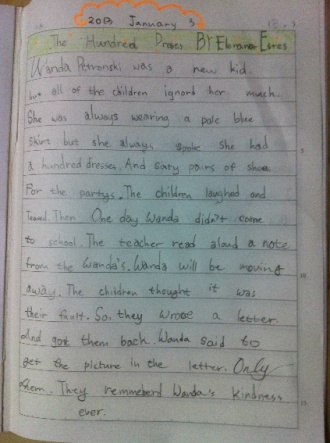 2013 January 3
The Hundred Dreses BY Elenor Estes
Wanda Petronski was a new kid.
but all of the children ignord her much.
She was always wearing a pale blue
skirt but she always spoke she had
a hundred dresses. And sixty pairs of shoes
For the partys. The children laughed and
teased. Then One day Wanda didn't come
to school. The teacher read aloud a note
from the Wanda's. Wanda will be moving
away. The children thought it was
their fault. So, they wrote a letter
and got them back. Wanda said to
get the picture in the letter. Only
them. They remmeberd Wanda's kindness
ever.